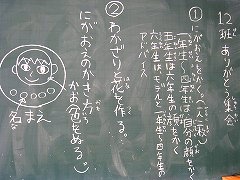 12班 ありがとう集会
①にがおえをかく。(一人一枚)
一年生〜四年生は自分の顔をかく
五年生は六年生の顔をかく
六年生は、モデルと一年生〜四年生の
アドバイス
②わかざりと花を作る。
にがおえのかき方
かお(色をぬる。)
名まえ